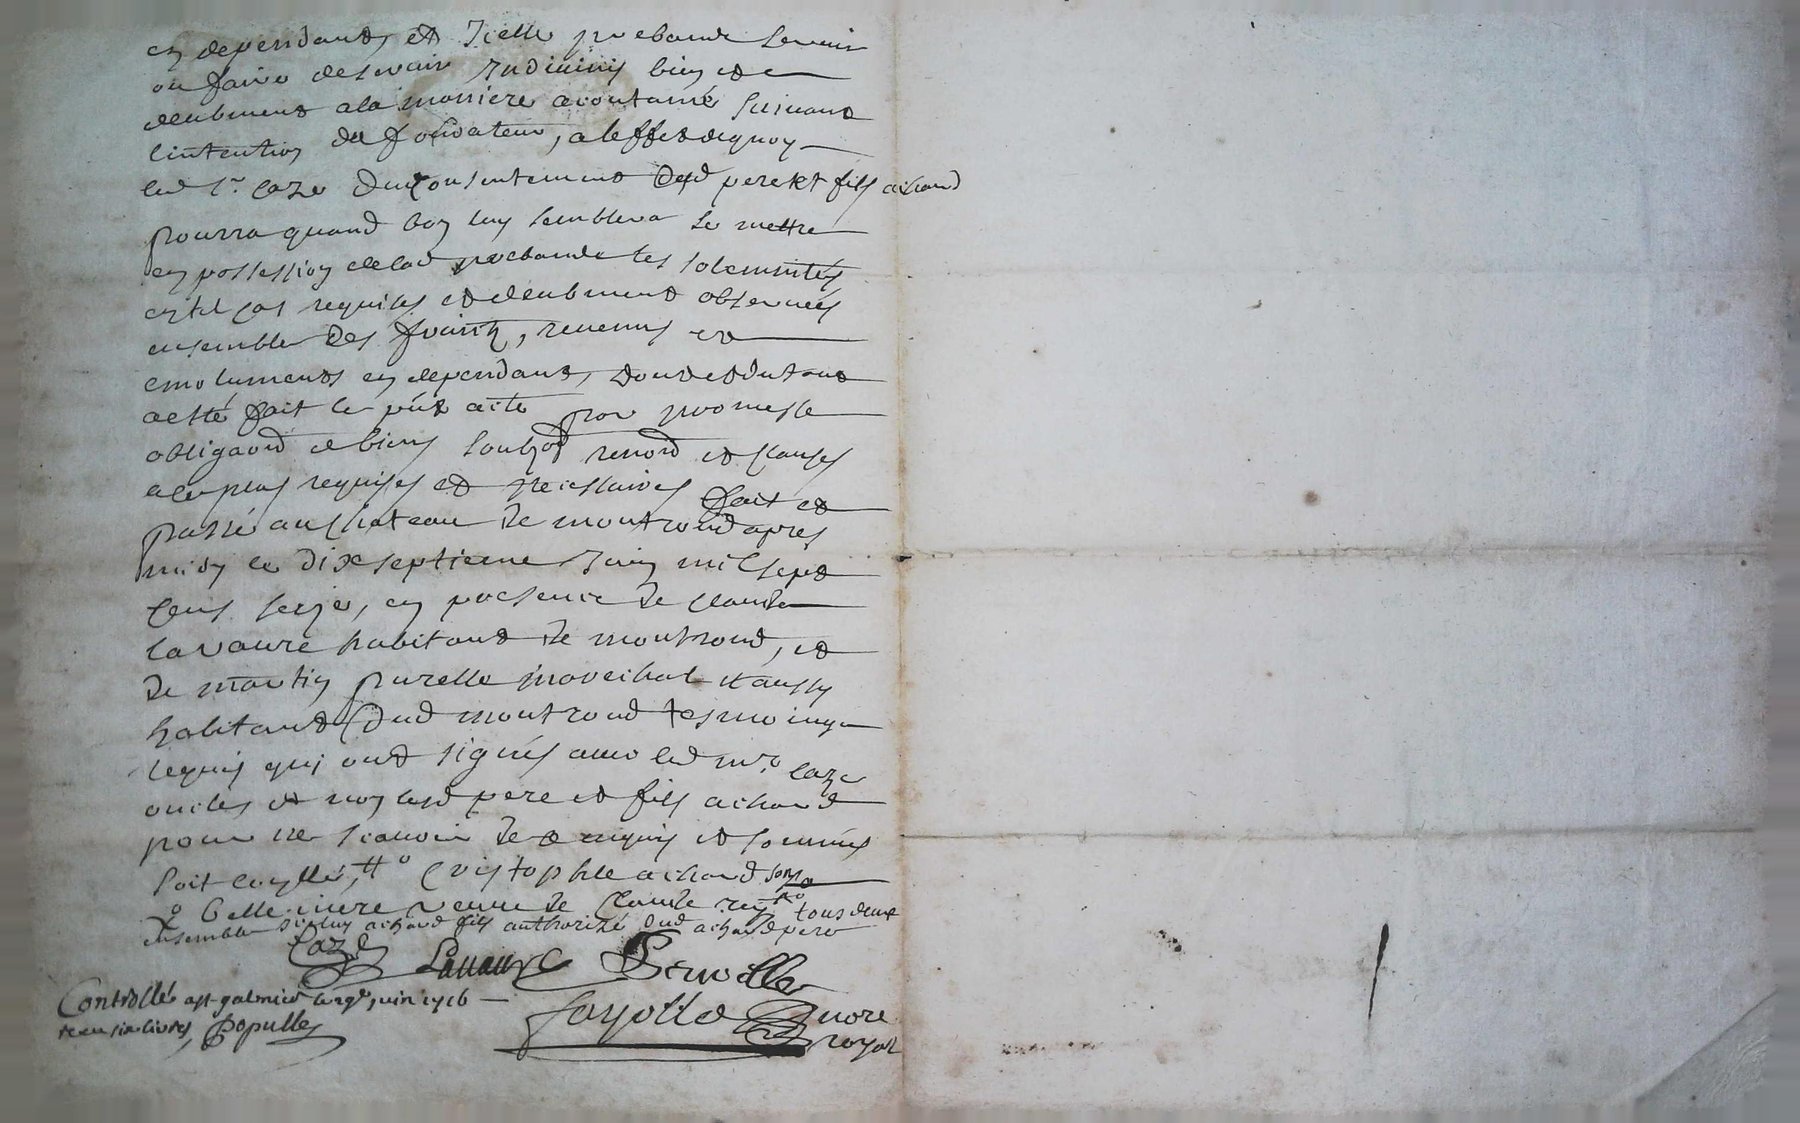 en dependants et Jcelle prebande servir
ou faire deservir Indivinis bien et
deubment a la maniere acoutamé suivant
l'intention du fondateur, a leffet dequoy
led sr. Caze du consentement desd pere et fils achard
pourra quand bon luy semblera se mettre
en possession de lad prebande les solemnités
en tel cas requises et deubment observées
ensemble des fruitz, revenus et
emoluments en dependant, dont et du tout
a esté fait le pnt acte par promesse
obligaon de biens soubzon renon et clauses
a ce plus requises et necessaires fait et
passé au chateau de montrond apres
midy le dixseptieme Juin mil sept
cens seize, en presence de claude
lavaure habitant de montrond, et
de martin purelle marechal et aussy
habitant dud montrond tesmoings
requis qui ont signés avec led mre Caze
oncles et non lesd pere et fils achard
pour ne scavoir de ce enquis et sommés
soit controllé, Cristophle achard
mere veuve de Claude tous deux
ensemble achard fils authorizé dud achard pere
Caze Lavaure
Fayolle nore
royal
Controllé a st galmier le juin 1716
receu six livres, Populle